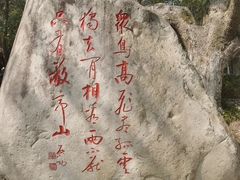 衆鳥高飛尽孤雲
獨去閒相看两不厭
只有敬亭山